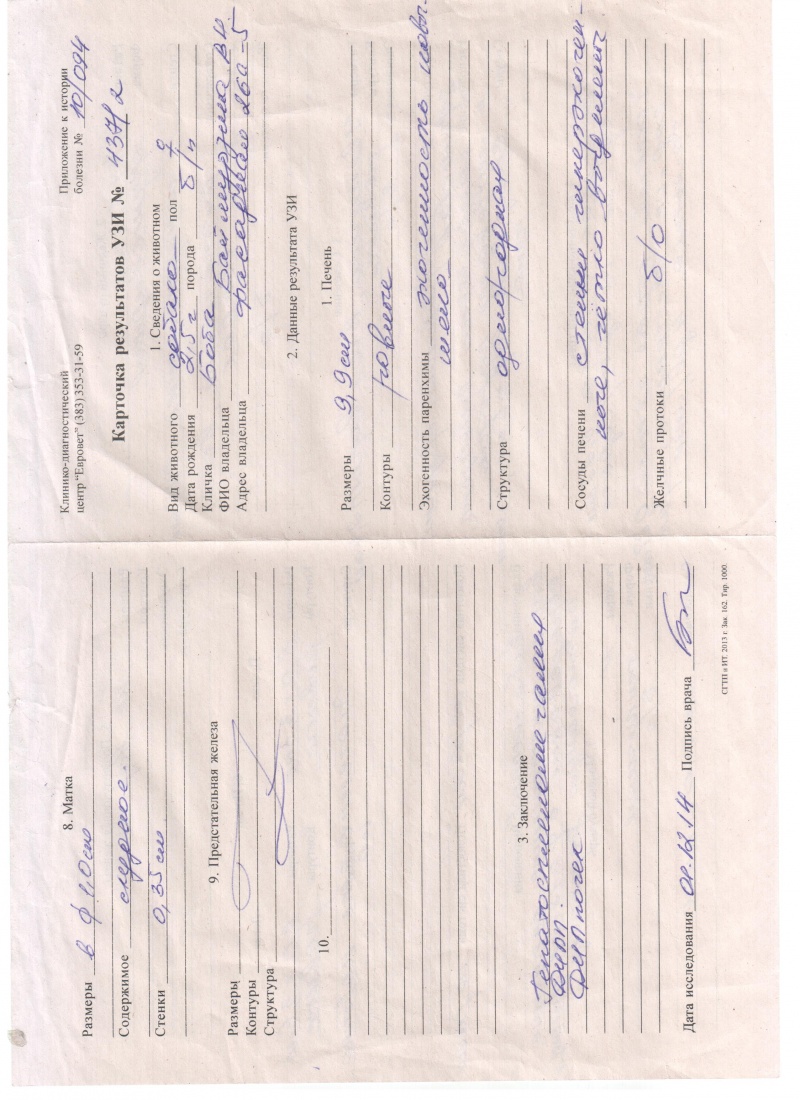 Клинико-диагностический
центр “Евровет” (383) 353-31-59
Приложение к истории
болезни № 10/094
Карточка результатов УЗИ № 437/2
1. Сведения о животном
Вид животного собака пол ♀
Дата рождения 2,5 г порода б/п
Кличка Боба
ФИО владельца
Адрес владельца 26а-5
2. Данные результата УЗИ
1. Печень
Размеры 9,9 см
Контуры ровные
Эхогенность паренхимы эхогенность повы-
шена
Структура однородная
Сосуды печени стенки гиперэхоген-
ные, чётко
Желчные протоки б/о
8. Матка
Размеры в ф 1,0 см
Содержимое
Стенки 0,35 см
9. Предстательная железа
Размеры
Контуры
Структура
10.
3. Заключение
Гепатоспленомегалия
почек
Дата исследования 12.14 Подпись врача
СГТП в ИТ. 2013 г. Зак. 162. Тир. 1000.